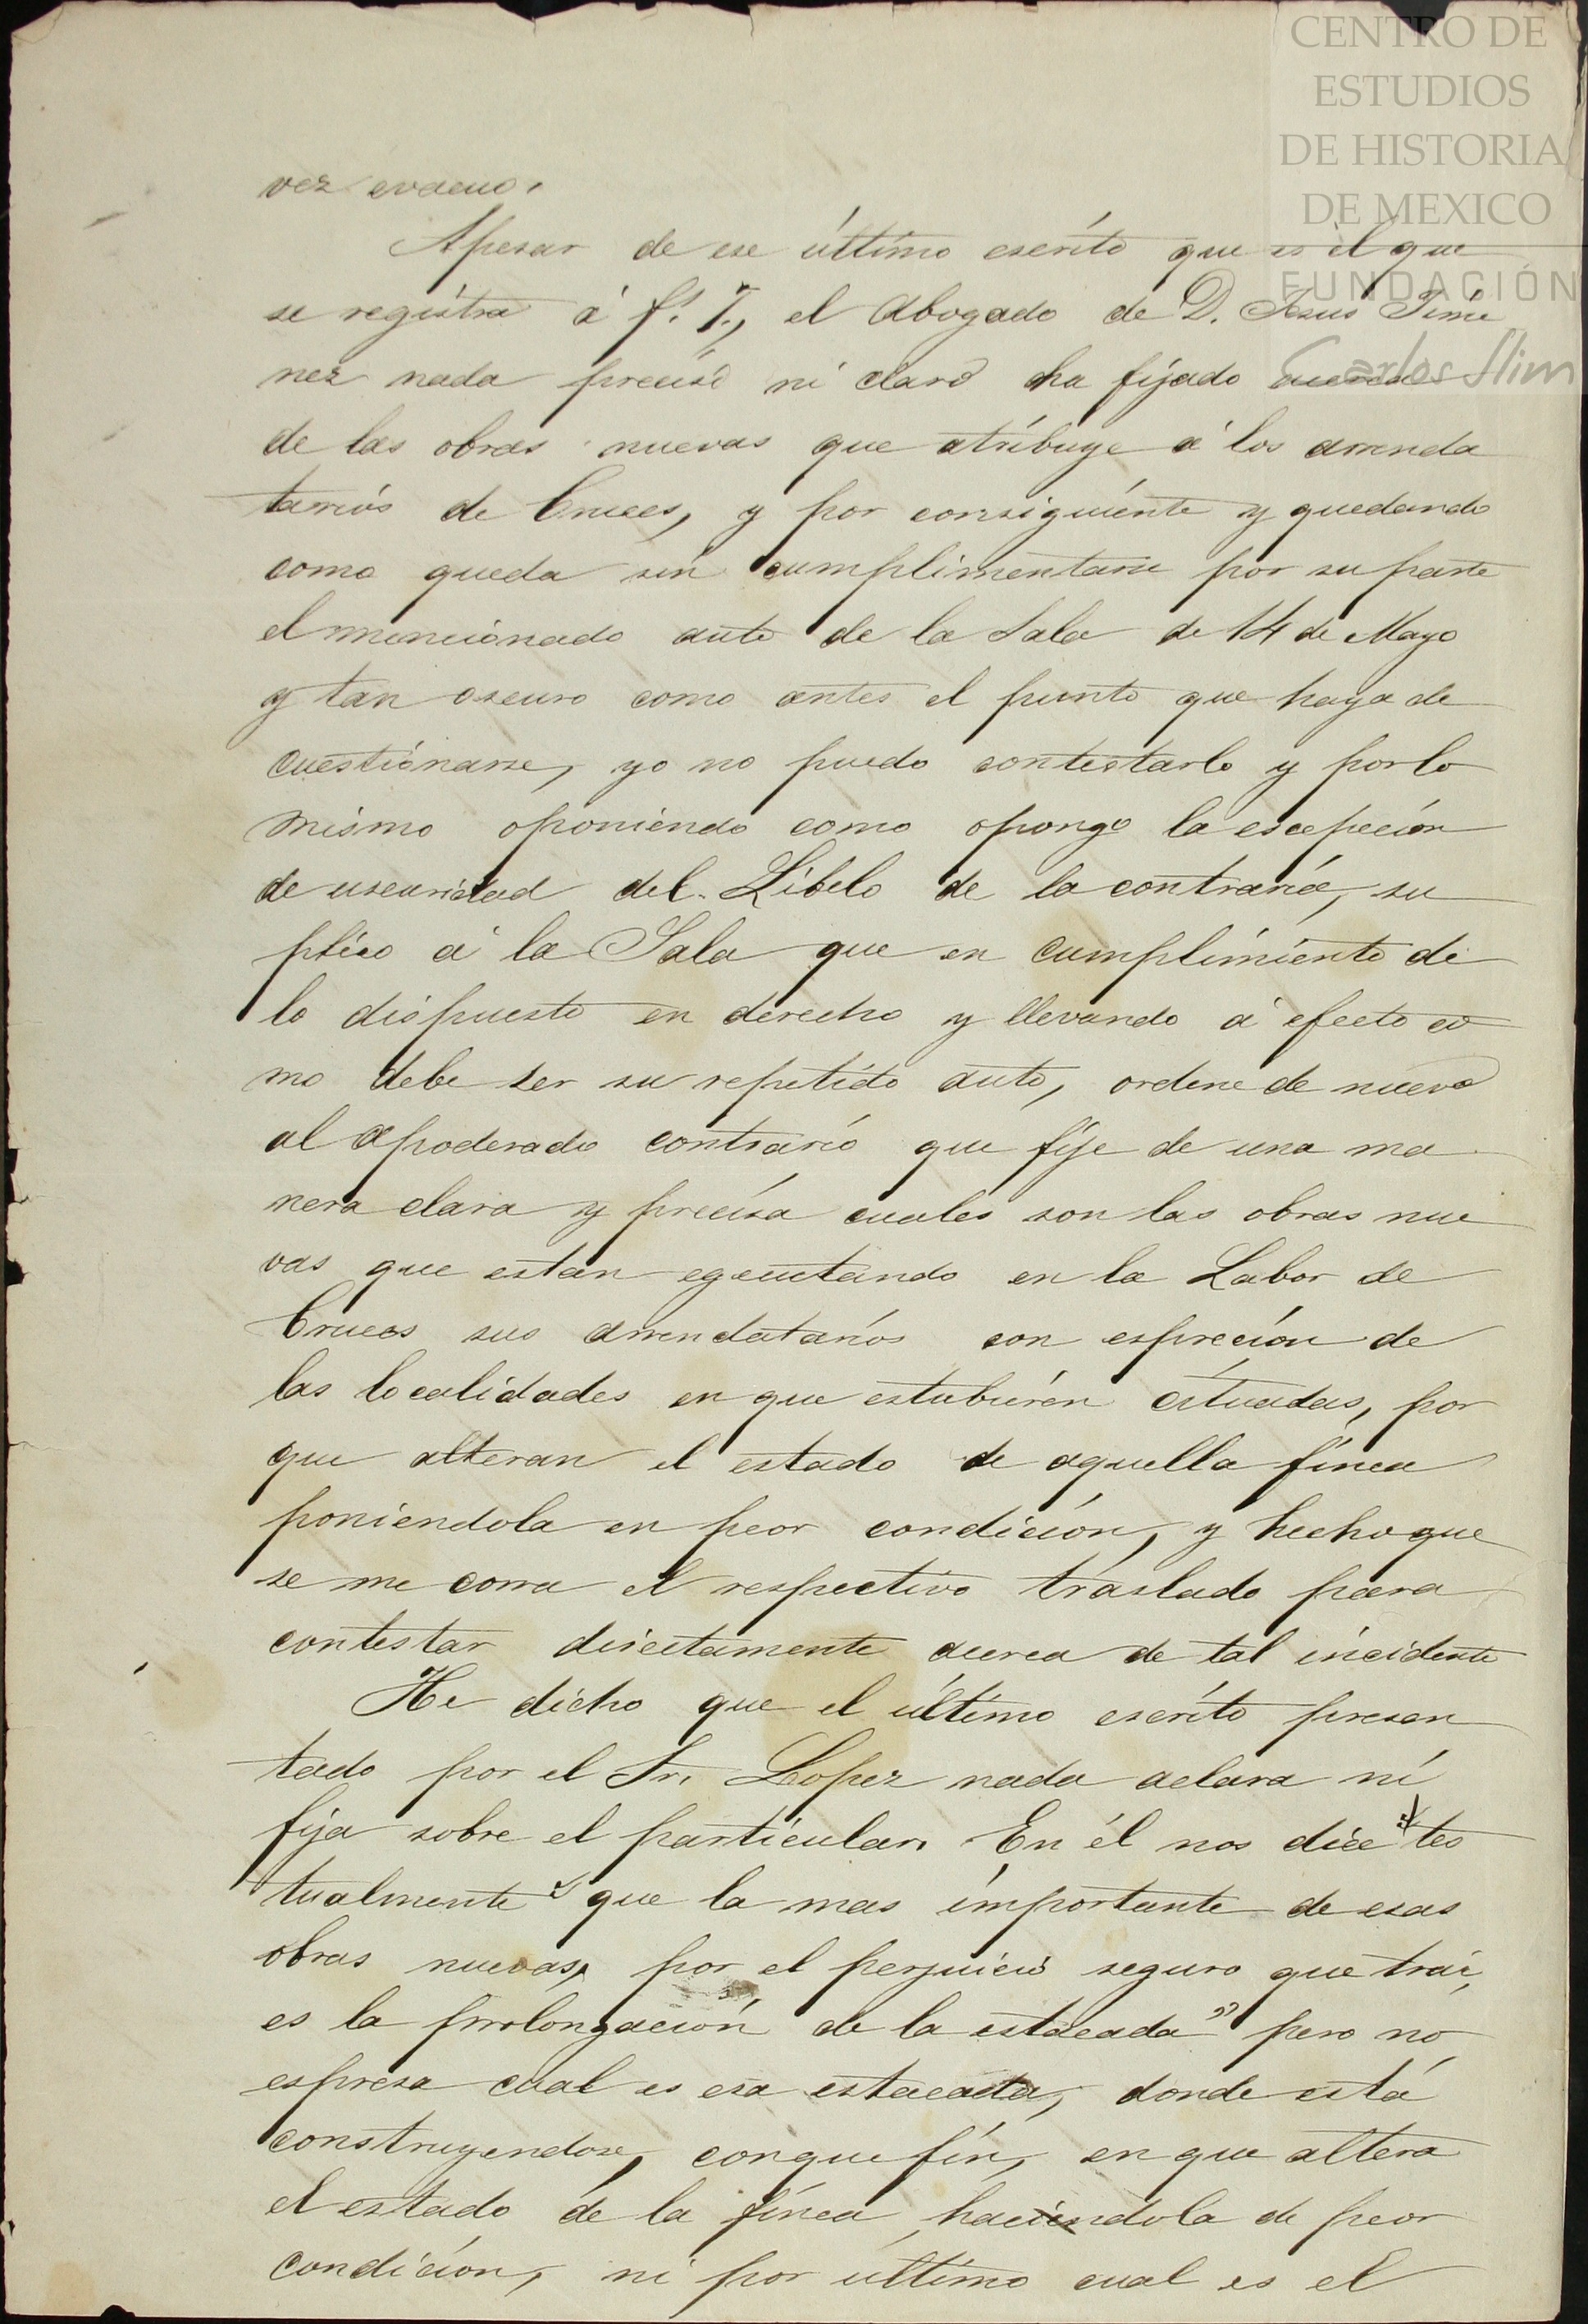 CENTRO DE
ESTUDIOS
DE HISTORIA
DE MEXICO
FUNDACIÓN
Carlos Slim
vez evacuo.
Apesar de ese último escrito que es el que
se registra á f. 7., el Abogado de D. Jesus Jime
nez nada preciso ni claro ha fijado acerca
de las obras nuevas que atribuye á los arrenda
tarios de Cruces, y por consiguiente y quedando
como queda sin cumplimentarse por su parte
el mencionado auto de la Sala de 14 de Mayo
y tan oscuro como antes el punto que haya de
cuestionarse, yo no puedo contestarlo y por lo
mismo oponiendo como opongo la escepción
de uscuridad del Libelo de la contraria, su
plico á la Sala que en cumplimiento de
lo dispuesto en derecho y llevando á efecto co
mo debe ser su repetido auto, ordene de nuevo
al apoderado contrario que fije de una ma
nera clara y precisa cuales son las obras nue
vas que estan egecutando en la Labor de
Cruces sus arrendatarios con espreción de
las localidades en que estubieren cituadas, por
que alteran el estado de aquella finca
poniendola en peor condición, y hecho que
se me corra el respectivo traslado para
contestar directamente acerca de tal incidente
He dicho que el último escrito presen
tado por el Sr. Lopez nada aclara ni
fija sobre el particular. En él nos dice tes
tualmente " que la mas importante de esas
obras nuevas, por el perjuicio seguro que trai,
es la prolongación de la estacada" pero no
espresa cual es esa estacada, donde está
construyendose, conque fin, en que altera
el estado de la finca haciendola de peor
condición, ni por último cual es el